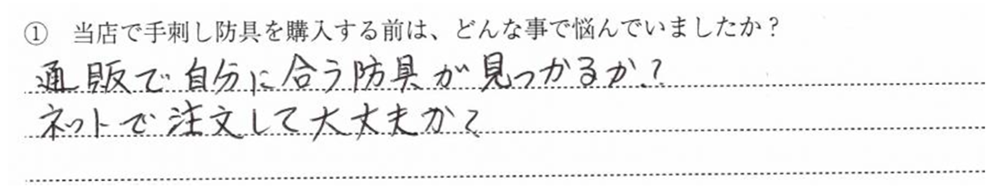 ① 当店で手刺し防具を購入する前は、どんな事で悩んでいましたか？
通販で自分に合う防具が見つかるか？
ネットで注文して大丈夫か？